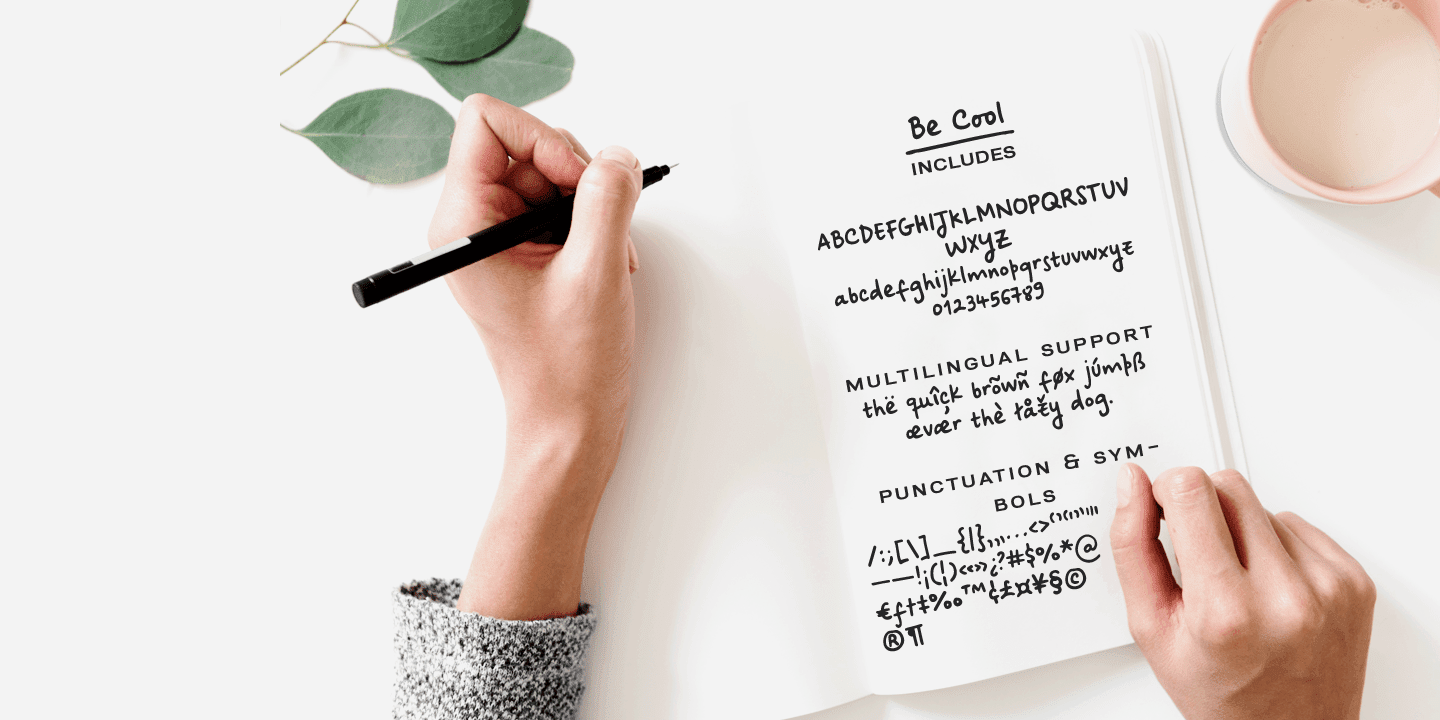 Be Cool
INCLUDES
ABCDEFGHIJKLMNOPQRSTUV
WXYZ
abcdefghijklmnopqrstuvwxyz
0123456789
MULTILINGUAL SUPPORT
thë quîçk brõwñ føx júmþß
œvær thè łåžy dog.
PUNCTUATION & SYM-
BOLS
/:;[\]_{|},,,...<>‘’(‘)’‘’"'"
–—!¡(¦)‹«»›¿?#$%*@
€ƒ†‡‰™¢£¤¥§©
®¶